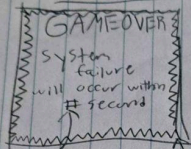 GAMEOVER
system
failure
will occur within
# second